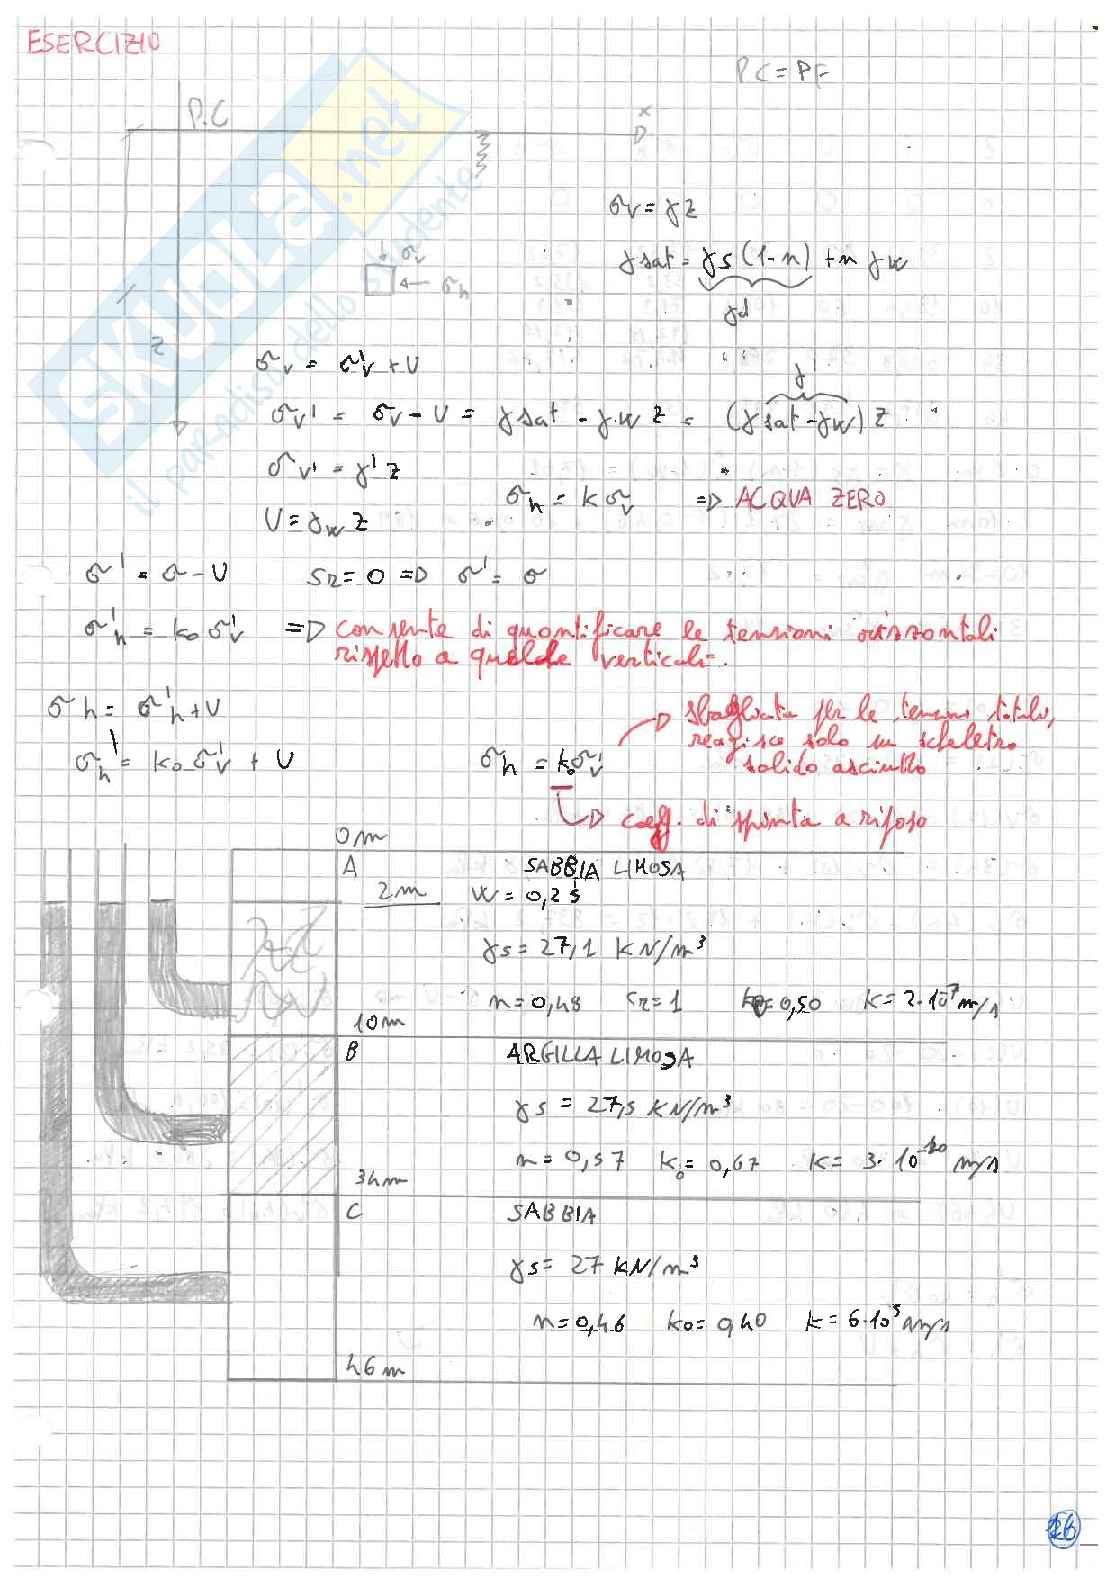 ESERCIZIO
PC = PF
P.C
x
σv = γz
γsat = γs (1-n) + n γw
γd
σv
σh
z
σv = σ'v + U
γ'
σv' = σv - U = γsat - γw z = (γsat - γw) z
σv' = γ' z
σh = k σv => ACQUA ZERO
U = γw z
σ' = σ - U Sr = 0 => σ' = σ
σ'h = k0 σ'v => consente di quantificare le tensioni orizzontali
rispetto a quelle verticali.
σh = σ'h + U
sbagliata per le tensioni totali,
reagisce solo lo scheletro
σh' = k0 σ'v + U σh = k0 σ'v
solido asciutto
coeff. di spinta a riposo
0m
A SABBIA LIMOSA
2m W = 0,25
γs = 27,1 KN/m³
n = 0,48 Sr = 1 k0 = 0,50 K = 2·10⁻⁷ m/s
10m
B ARGILLA LIMOSA
γs = 27,5 KN/m³
n = 0,57 K0 = 0,67 K = 3·10⁻¹⁰ m/s
34m
C SABBIA
γs = 27 KN/m³
n = 0,46 K0 = 0,40 K = 6·10⁵ m/s
46m
SKUOLA.net
il paradiso dello studente